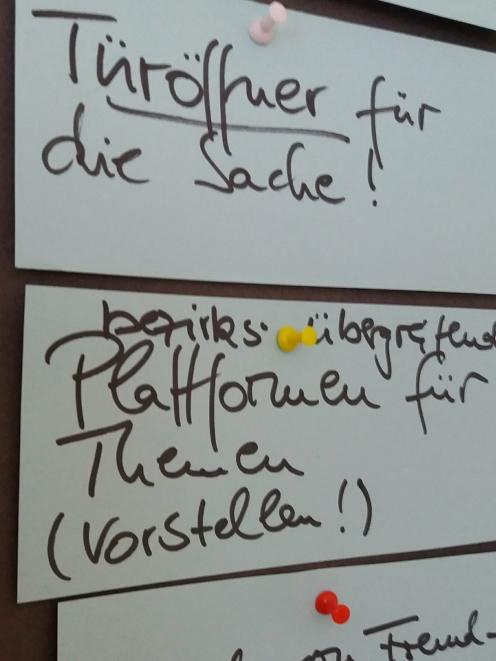 Türöffner für
die Sache!
bezirks- übergreifend
Plattformen für
Themen
(vorstellen!)